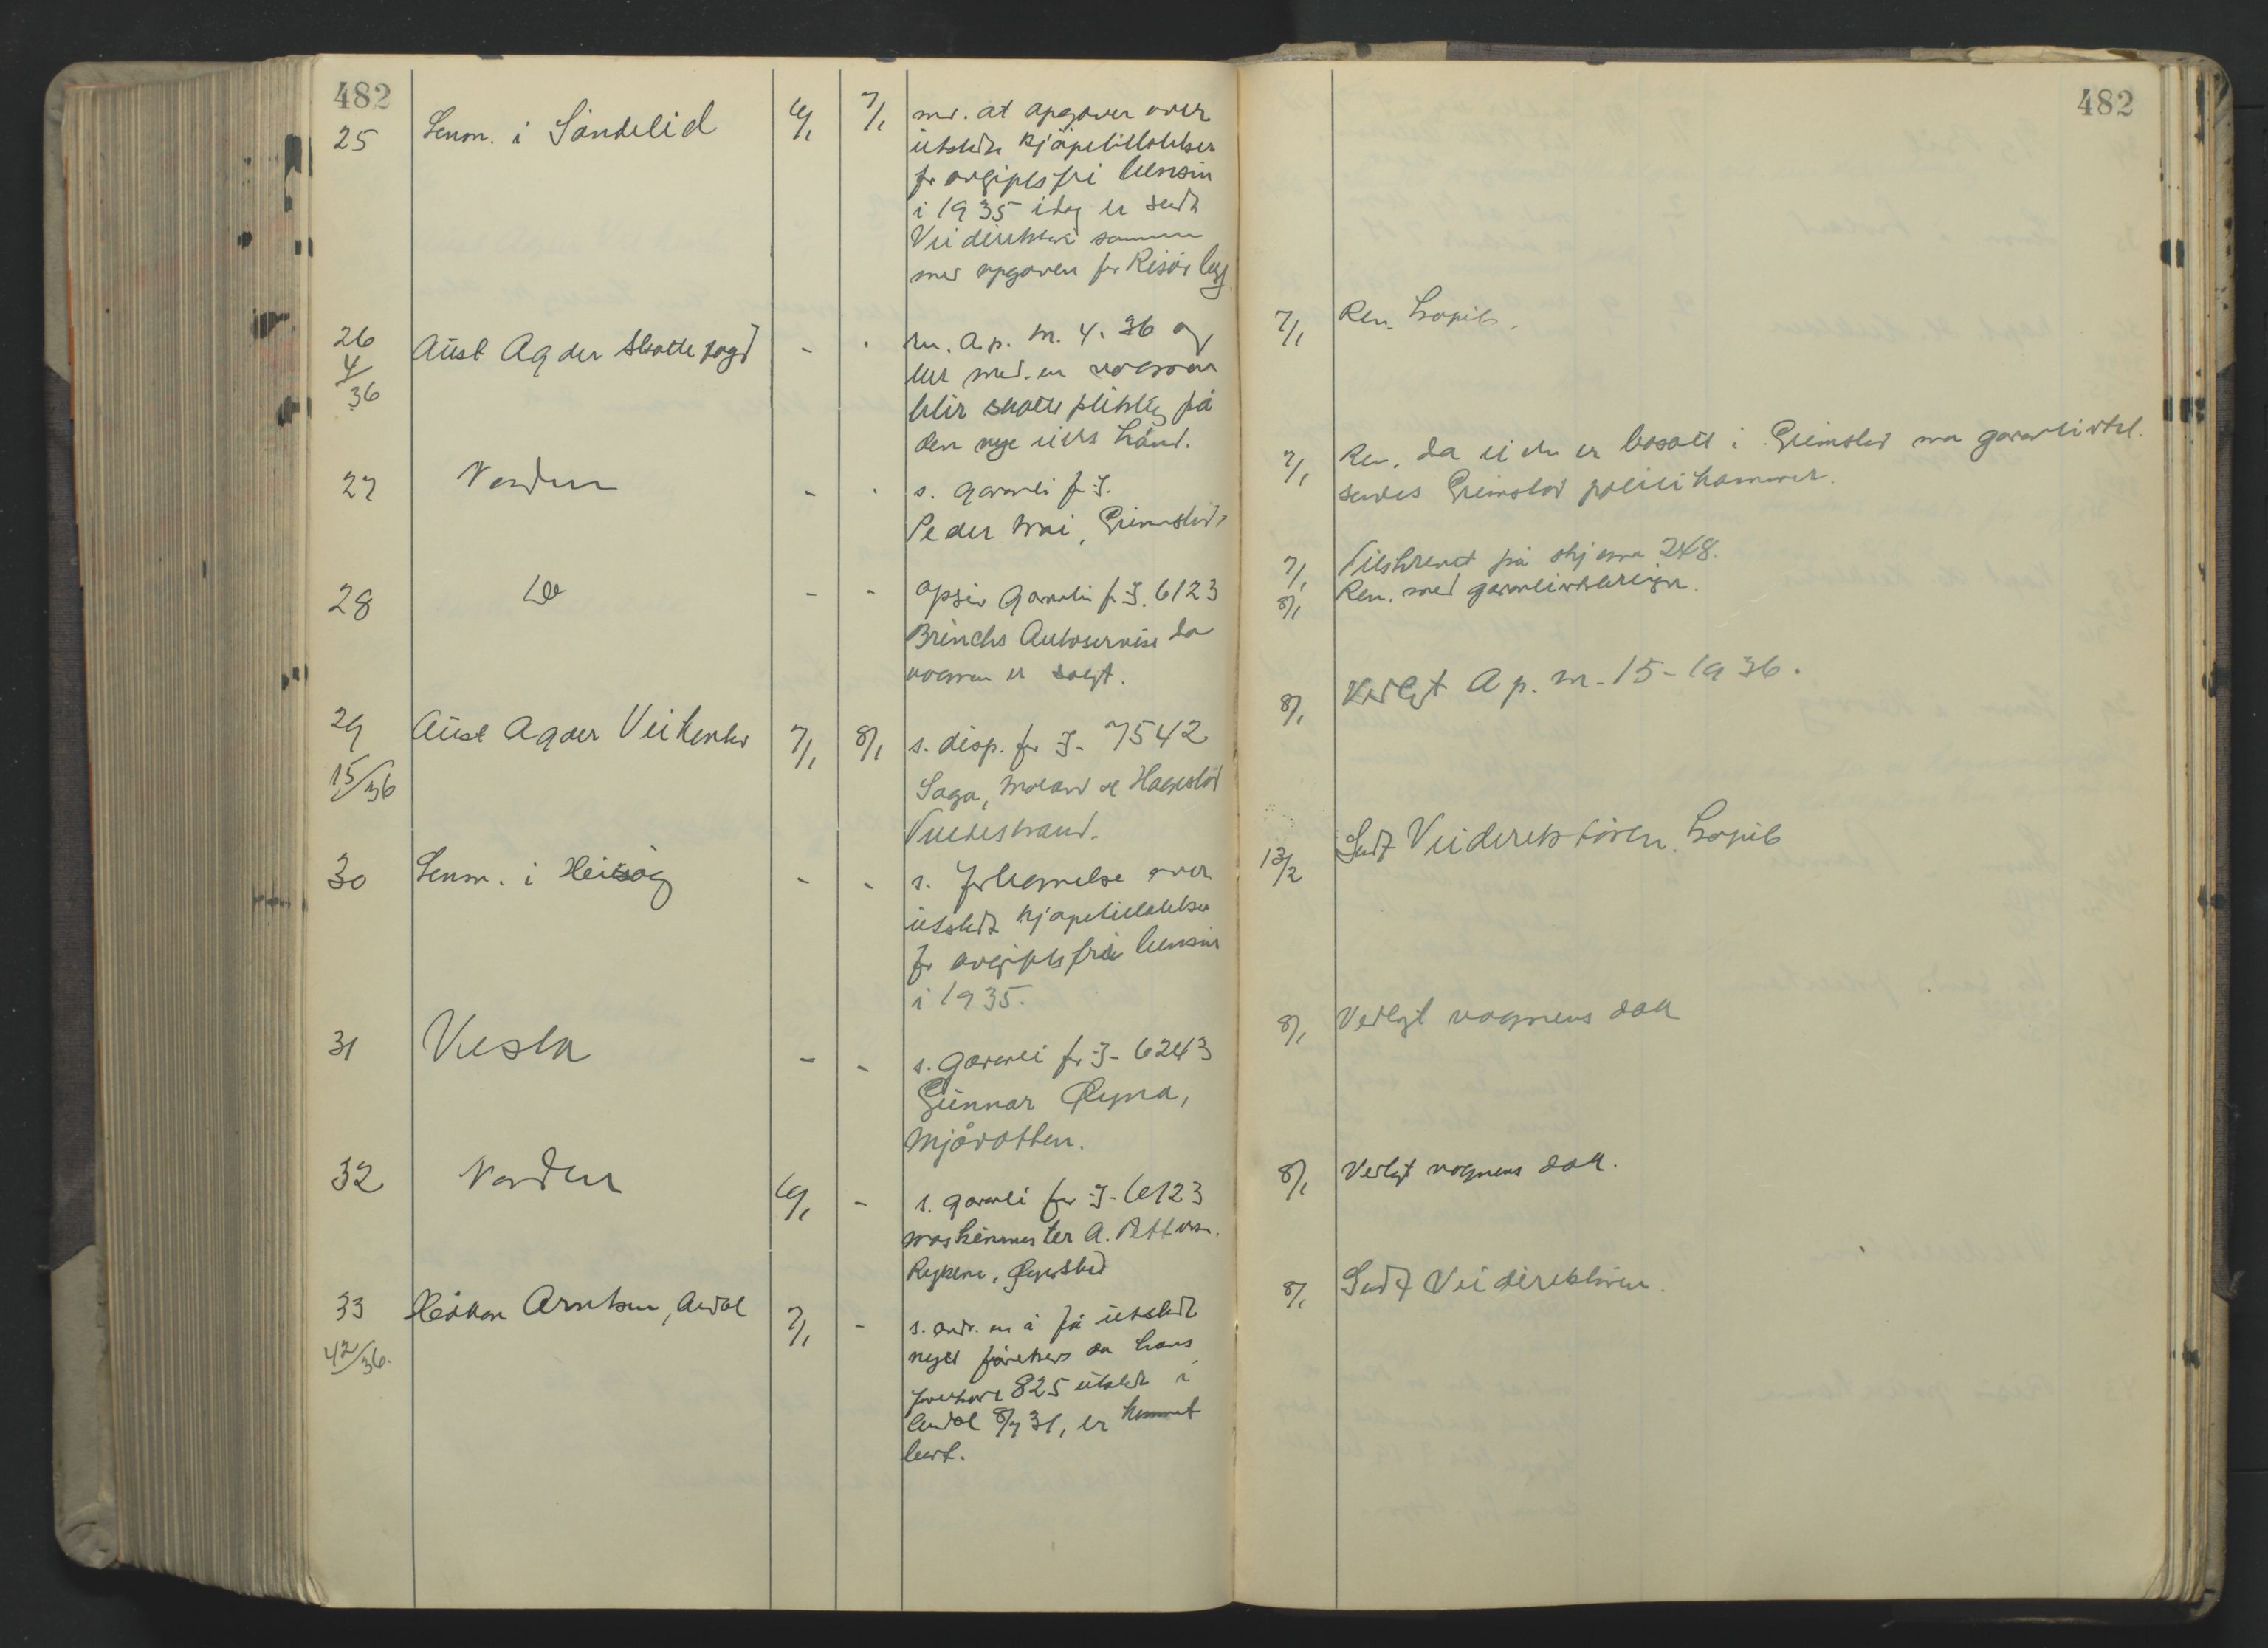 482
25 Lensm. i Søndeled 6/1 7/1 md. at opgaver over
utstedte kjøpetillatelser
for avgiftsfri bensin
i 1935 idag er sendt
Veidirektøren sammen
med opgaven for Risør by.
26 Aust Agder skattefogd - - A.p. m. 4. 36 og
ber med. en vognen
blir skattepliktig på
den nye eiers hånd.
4/36
27 Norden - - s. garanti for I.
Peder Grimstad,
28 Do - - opsier garanti f. I. 6123
Brincks Autoservice da
vognen er solgt.
29 Aust Agder Veikontor 7/1 8/1 s. disp. for I- 7542
15/36
Saga, Moland og Hagestad
Tvedestrand.
30 Lensm. i Heisög - - s. fortegnelse over
utstedt kjøpetillatelser
for avgiftsfrie bensin
i 1935.
31 Vesta - - s. garanti for I- 6243
Gunnar Øyna,
Mjåvatten.
32 Norden 6/1 - s. garanti for I- 6123
maskinmester A. Petters.
Rykene, Øyestad
33 Håkon Arntsen, Arendal 7/1 - s. andr. om å få utstedt
42/36.
nytt førerkort da hans
førerkort 825 utstedt i
Arendal 8/7 31, er kommet
bort.
482
7/1 Ren. kopib.
7/1 Ren. da eieren er bosatt i Grimstad må garantierkl.
sendes Grimstad politikammer.
7/1 Tilskrevet på skjema 248.
8/1 Ren. med garantierklæringen.
8/1 Vedlagt A p. m. 15-1936.
13/2 Sendt Veidirektøren. kopib
8/1 Vedlagt vognens dok
8/1 Vedlagt vognens dok.
8/1 Sendt Veidirektøren.